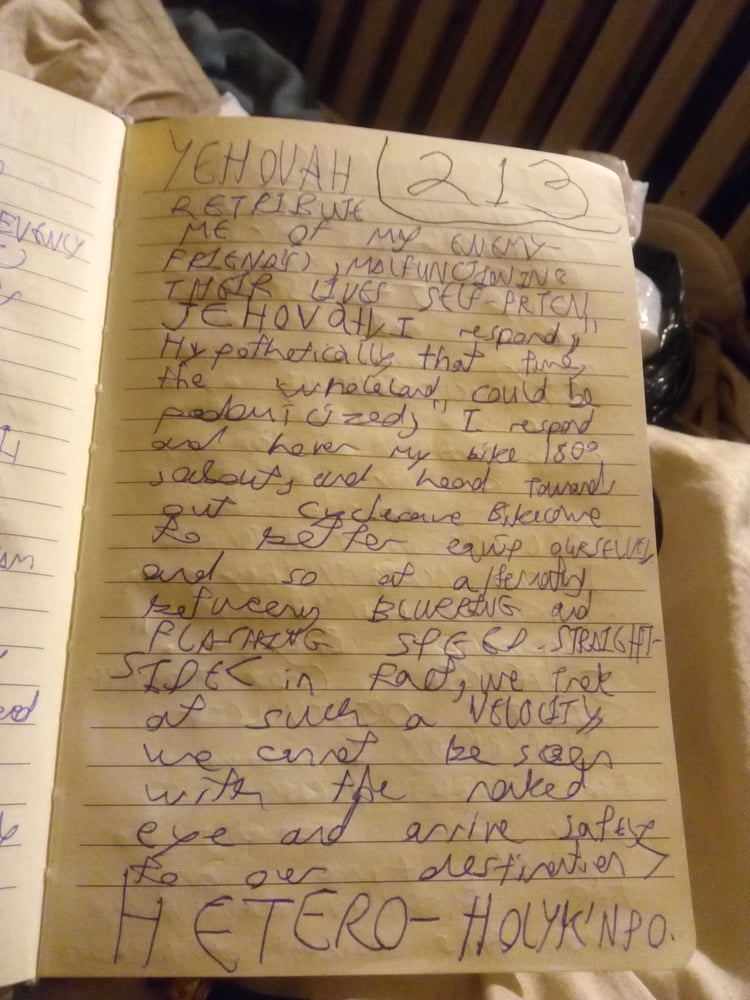 YEHOVAH 213
RETRIBUTE
ME OF MY ENEMY-
FRIEND(S), MALFUNCTIONING
THEIR LIVES SELF-
JEHOVAH, I respond,
Hypothetically that time,
the could be
I respond
and hover my bike 180°
about, and head towards
out
to better equip OURSELVES,
and so at alternately
between BLURRING and
FLASHING SPEED-STRAIGHT-
SIDE< in fact, we trek
at such a VELOCITY,
we cannot be seen
with the naked
eye and arrive safely
to our destination>
HETERO-HOLYK'NPO.
EVENCY